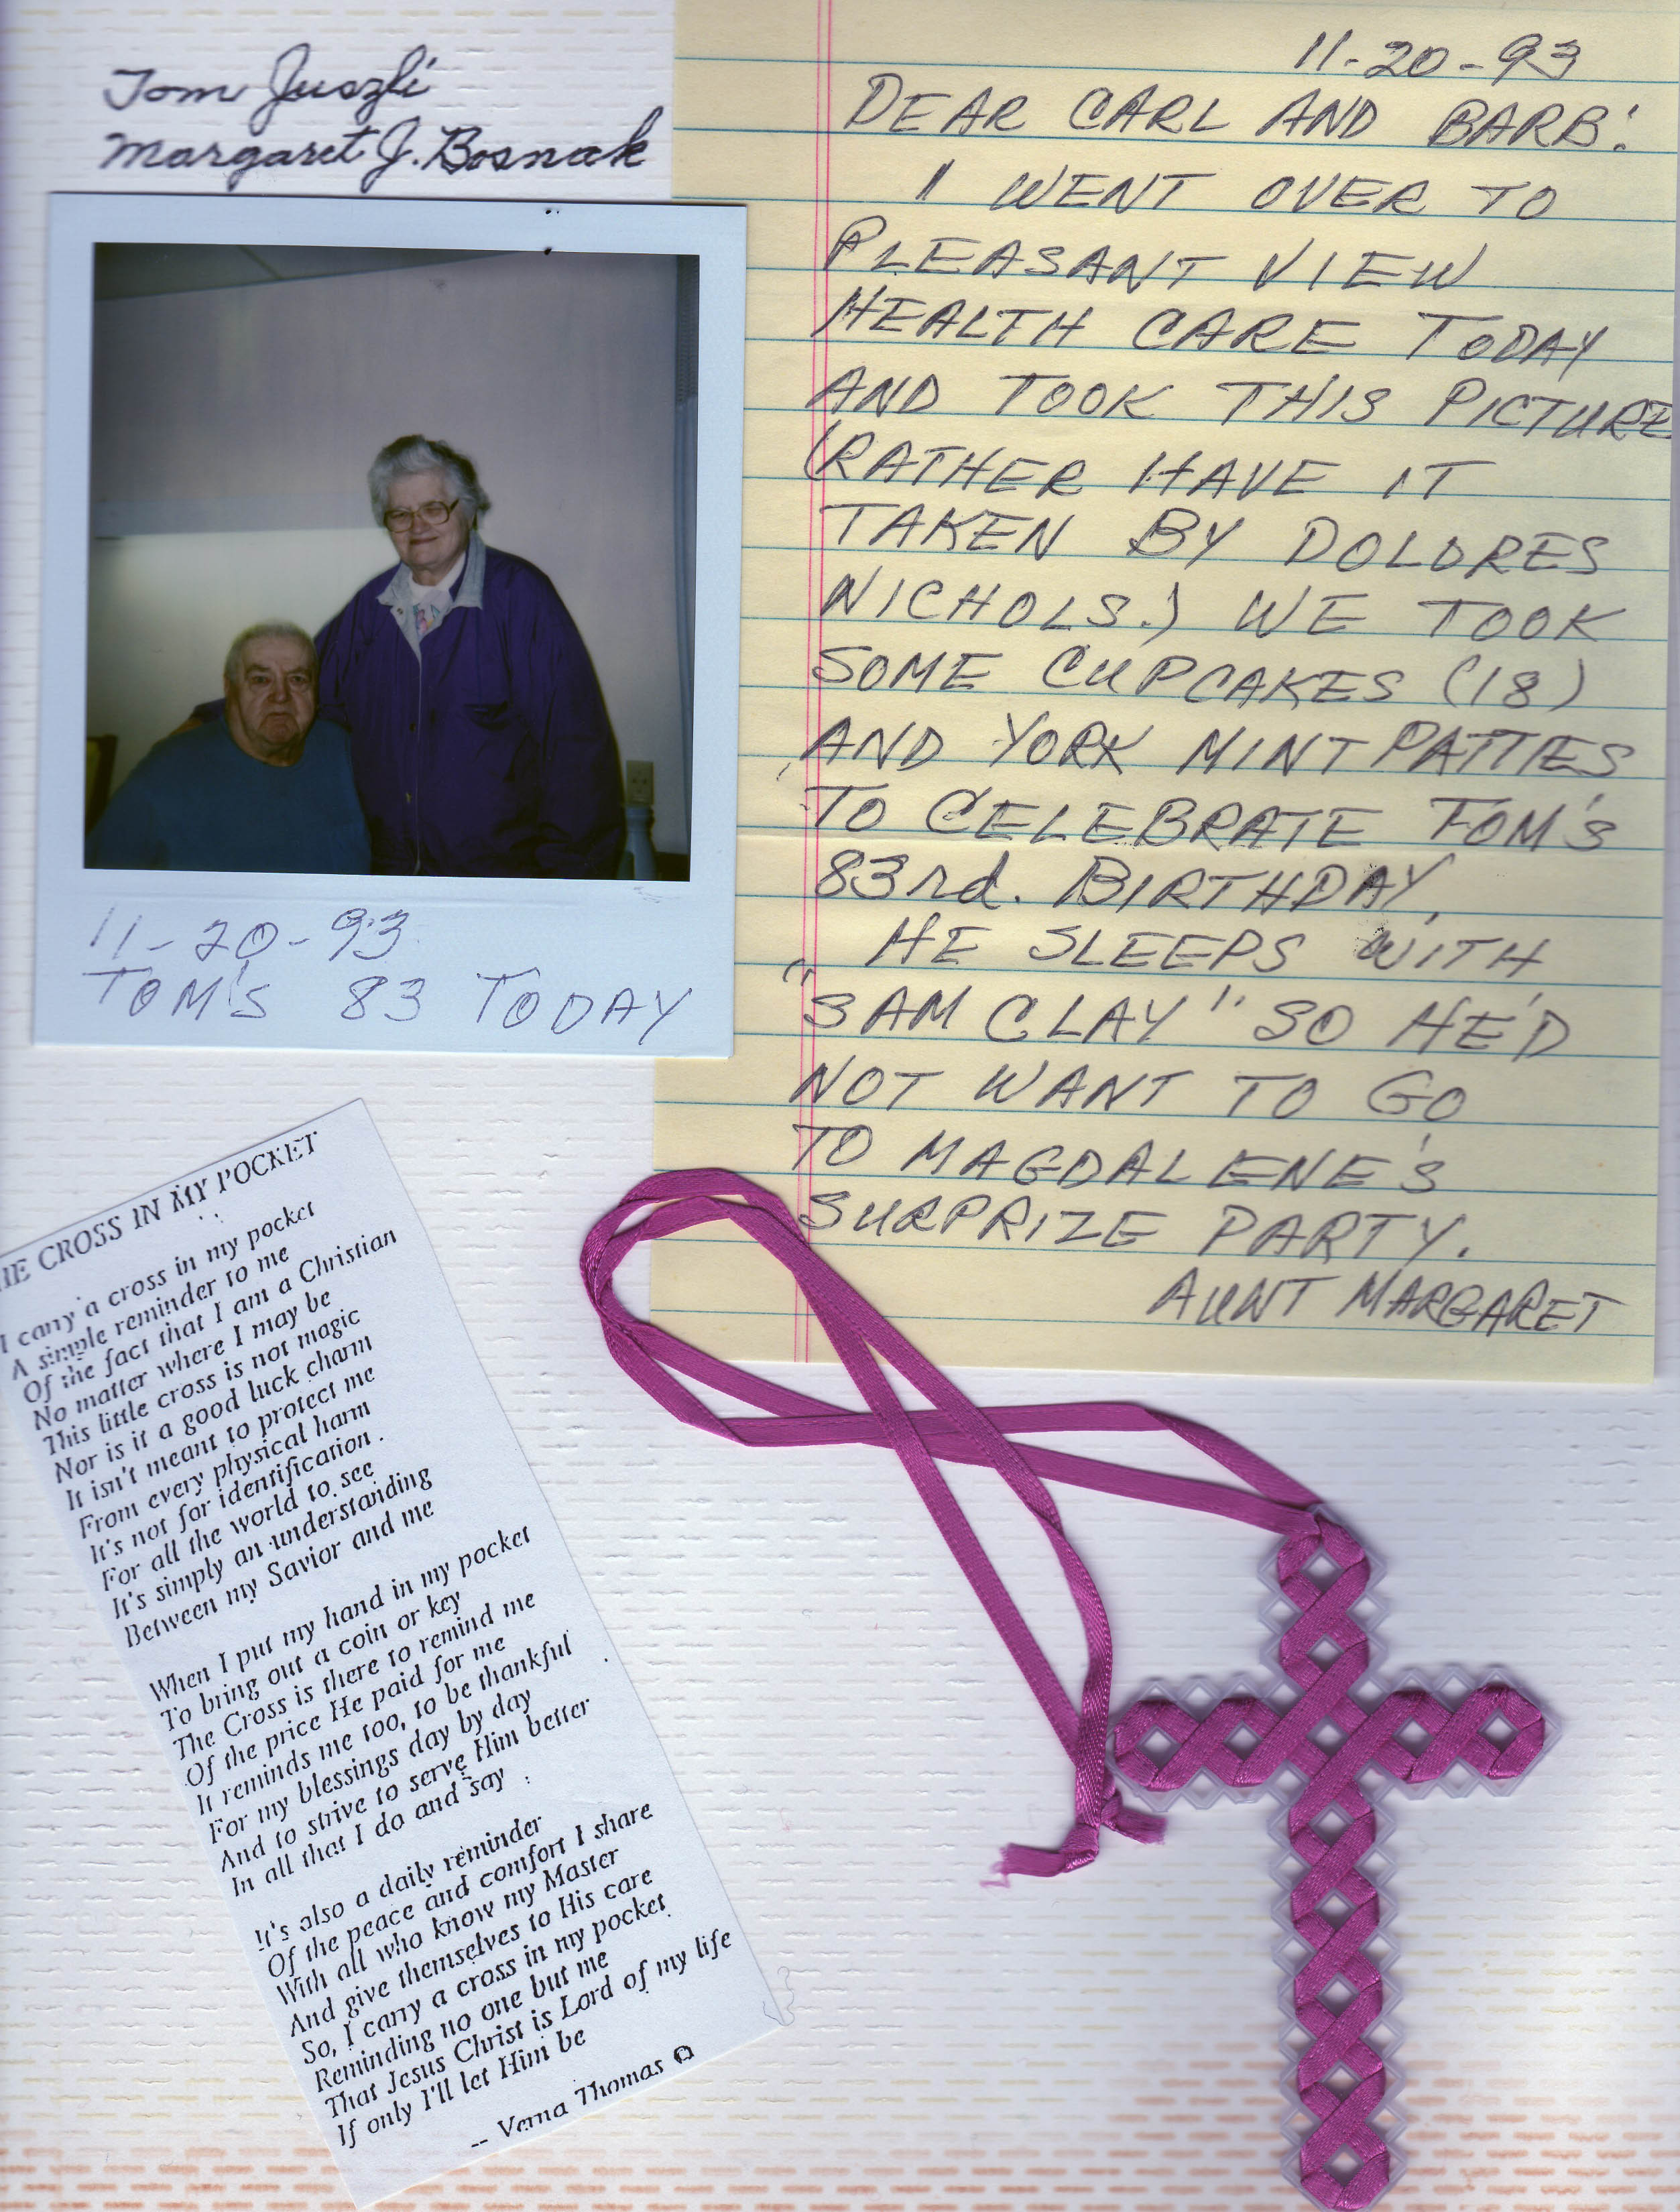 Tom Juszli
Margaret J. Bosnak
11-20-93
TOM'S 83 TODAY
11-20-93
DEAR CARL AND BARB:
I WENT OVER TO
PLEASANT VIEW
HEALTH CARE TODAY
AND TOOK THIS PICTURE
(RATHER HAVE IT
TAKEN BY DOLORES
NICHOLS.) WE TOOK
SOME CUPCAKES (18)
AND YORK MINT PATTIES
TO CELEBRATE TOM'S
83rd. BIRTHDAY.
HE SLEEPS WITH
"SAM CLAY" SO HE'D
NOT WANT TO GO
TO MAGDALENE'S
SURPRIZE PARTY.
AUNT MARGARET
HE CROSS IN MY POCKET
I carry a cross in my pocket
A simple reminder to me
Of the fact that I am a Christian
No matter where I may be
This little cross is not magic
Nor is it a good luck charm
It isn't meant to protect me
From every physical harm
It's not for identification.
For all the world to see
It's simply an understanding
Between my Savior and me
When I put my hand in my pocket
To bring out a coin or key
The Cross is there to remind me
Of the price He paid for me
It reminds me too, to be thankful
For my blessings day by day
And to strive to serve Him better
In all that I do and say
It's also a daily reminder
Of the peace and comfort I share
With all who know my Master
And give themselves to His care
So, I carry a cross in my pocket
Reminding no one but me
That Jesus Christ is Lord of my life
If only I'll let Him be
-- Verna Thomas